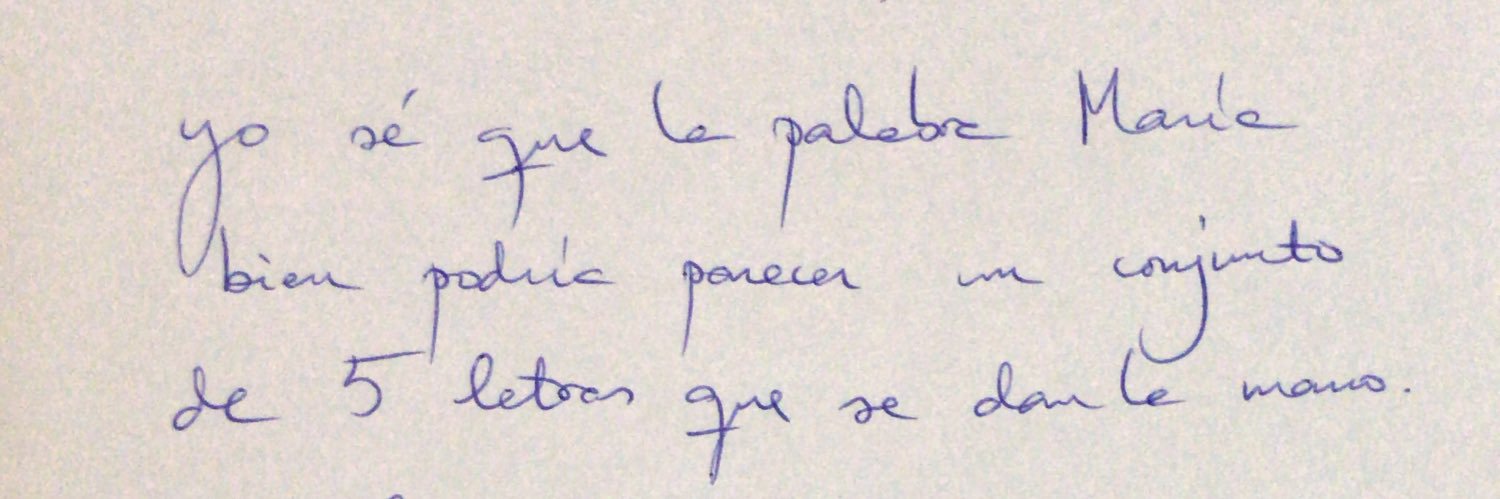 yo sé que la palabra María
bien podría parecer un conjunto
de 5 letras que se dan la mano.